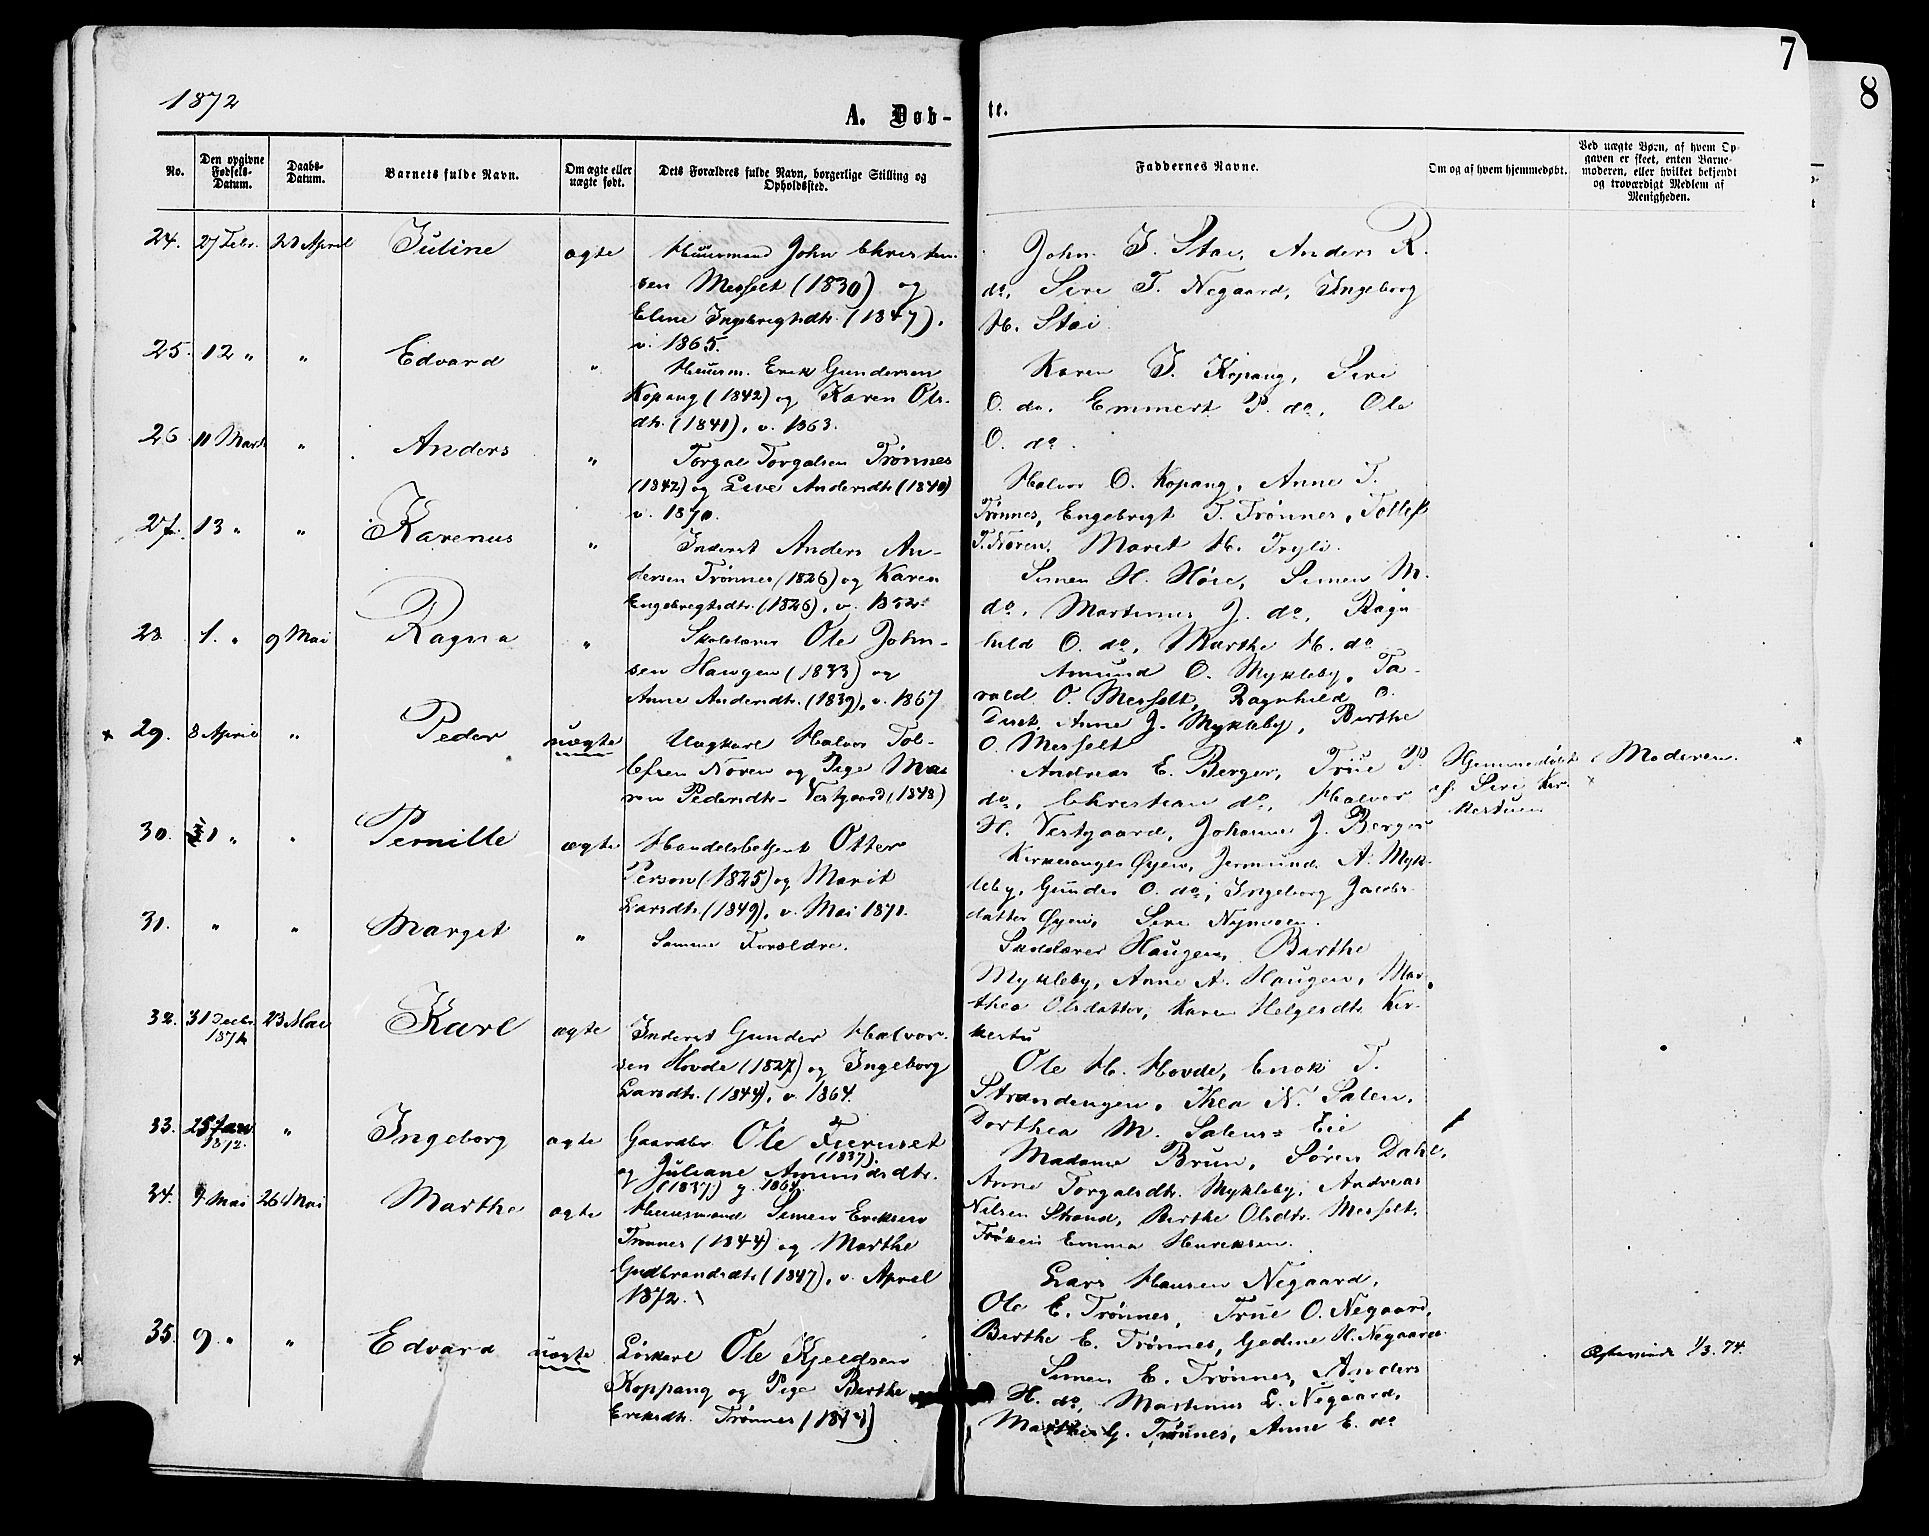 7
8
1872
A. Døb-
te.
No.
Den opgivne
Fødsels-
Datum.
Daabs-
Datum.
Barnets fulde Navn.
Om ægte eller
uægte født.
Dets Forældres fulde Navn, borgerlige Stilling og
Opholdssted.
Faddernes Navne.
Om og af hvem hjemmedøbt.
Ved uægte Børn, af hvem Op-
gaven er skeet, enten Barne-
moderen, eller hvilket bekjendt
og troværdigt Medlem af
Menigheden.
24. 27 Febr. 28 April Juline ægte Huusmand John Christen-
sen Messelt (1830) og
Eline Ingebrigtsdtr. (1847),
v. 1865.
John J. Stai, Anders R.
do, Siri T. Negaard, Ingeborg
H. Stai
25. 12 " " Edvard " Huusm. Erik Gundersen
Kopang (1842) og Karen Ols-
dtr. (1841), v. 1863.
Karen J. Kopang, Siri
O. do, Emmert P. do, Ole
O. do.
26 11 Marts " Anders " Torgal Torgalsen Trønnes
(1842) og Live Andersdtr. (1840)
v. 1870.
Halvor O. Kopang, Anne T.
Trønnes, Engebrigt T. Trønnes, Tollef
T. Noren, Marit H. Tryli.
27. 13 " " Karenus " Inderst Anders An-
dersen Trønnes (1826) og Karen
Engebrigtsdtr. (1826), v. 1852.
Simen H. Høie, Simen M.
do, Martinus J. do, Ragn
hild O. do, Marthe H. do
28 1. " 9 Mai Ragna " Skolelærer Ole John-
sen Haugen (1833) og
Anne Andersdtr. (1839), v. 1867
Amund O. Mykleby, Ta-
rald O. Messelt, Ragnhild O.
do, Anne J. Mykleby, Birthe
O. Messelt
x 29. 8 April " Peder uægte Ungkarl Halvor Tol-
lefsen Noren og Pige Ma-
ren Pedersdtr. Vestgaard (1848)
Andreas E. Berger, True P.
do, Christian do, Halvor
H. Vestgaard, Johanne J. Berger
Hjemmedøbt
af Siri Kir-
kestuen
Moderen.
30. 31 " " Pernille ægte Handelsbetjent Otter
Person (1825) og Marit
Larsdtr. (1849), v. Mai 1871.
Kirkesanger Øyen, Jermund A. Myk-
leby, Gunder O. do, Ingeborg Jacobs-
datter Øyen, Siri Nymoen.
31. " " Marget " Samme Forældre.
Skolelærer Haugen, Birthe
Mykleby, Anne A. Haugen, Mar-
thea Olsdatter, Karen Helgesdtr. Kir-
kestu
32. 31 Decbr. 1871 23 Mai Karl ægte Inderst Gunder Halvor-
sen Hovde (1827) og Ingeborg
Larsdtr. (1844), v. 1864.
Ole H. Hovde, Enok T.
Strandengen, Thea N. Salen,
Dorthea M. Salens-Eie
33. 25 Jan 1872. " Ingeborg ægte Gaardbr. Ole Furuset
(1837)
og Juliane Amundsdtr.
(1837) g. 1864.
Madame Brun, Søren Dahl,
Anne Torgalsdtr. Mykleby, Andreas
Nilsen Strand, Birthe Olsdtr. Messelt,
Frøken Emma Henriksen.
34. 9 Mai 26 Mai Marthe ægte Huusmand Simen Eriksen
Trønnes (1844) og Marthe
Gudbrandsdtr. (1847), v. April
1872.
Lars Hansen Negaard,
Ole E. Trønnes, True O. Negaard,
Birthe E. Trønnes, Godine H. Negaard
x 35. 9 " " Edvard uægte Løskarl Ole Kjeldsen
Koppang og Pige Birthe
Eriksdtr. Trønnes (1841)
Simen E. Trønnes, Anders
H. do, Martinus L. Negaard,
Marthe G. Trønnes, Anne E. do
1/3. 74.